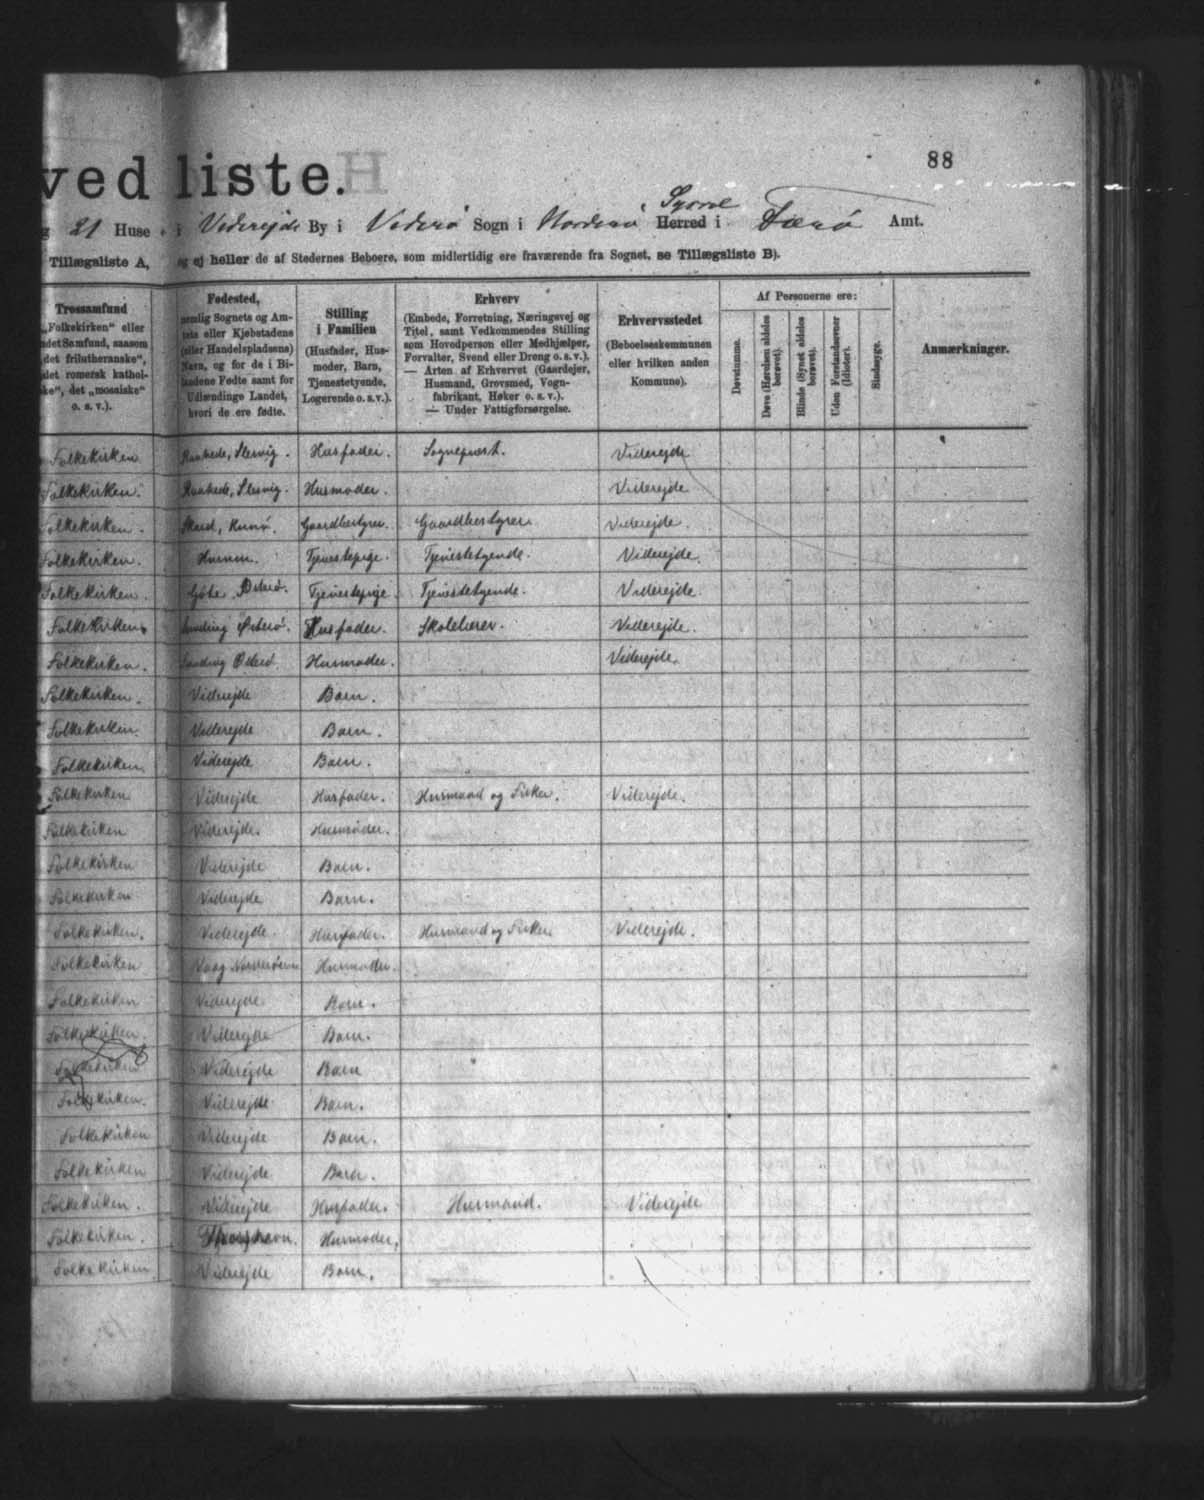 88
ved liste.
21 Huse i Viderejde By i Viderø Sogn i Norderø Syssel Herred i Færø Amt.
Tillægsliste A, og ej heller de af Stedernes Beboere, som midlertidig ere fraværende fra Sognet, se Tillægsliste B).
Trossamfund
„Folkekirken“ eller
ndet Samfund, saasom
det frilutheranske“,
det romersk kathol-
ke“, det „mosaiske“
o. s. v.).
Fødested,
nemlig Sognets og Am-
tets eller Kjøbstadens
(eller Handelspladsens)
Navn, og for de i Bi-
landene Fødte samt for
Udlændinge Landet,
hvori de ere fødte.
Stilling
i Familien
(Husfader, Hus-
moder, Barn,
Tjenestetyende,
Logerende o. s. v.).
Erhverv
(Embede, Forretning, Næringsvej og
Titel, samt Vedkommendes Stilling
som Hovedperson eller Medhjælper,
Forvalter, Svend eller Dreng o. s. v.).
— Arten af Erhvervet (Gaardejer,
Husmand, Grovsmed, Vogn-
fabrikant, Høker o. s. v.).
— Under Fattigforsørgelse.
Erhvervsstedet
(Beboelseskommunen
eller hvilken anden
Kommune).
Af Personerne ere:
Døvstumme.
Døve (Hørelsen aldeles
berøvet).
Blinde (Synet aldeles
berøvet).
Uden Forstandsevner
(Idioter).
Sindssyge.
Anmærkninger.
Folkekirken Slesvig. Husfader. Sognepræst. Viderejde
Folkekirken. Slesvig. Husmoder. Viderejde
Folkekirken. Skard, Kunø. Gaardbestyrer. Gaardbestyrer Viderejde.
Folkekirken. Tjenestepige. Tjenestetyende. Viderejde.
Folkekirken. Gøte Østerø. Tjenestepige. Tjenestetyende. Viderejde.
Folkekirken. Østerø. Husfader. Skolelærer. Viderejde.
Folkekirken. Østerø. Husmoder. Viderejde.
Folkekirken. Viderejde Barn.
Folkekirken. Viderejde Barn.
Folkekirken. Viderejde Barn.
Folkekirken Viderejde Husfader. Husmand og Fisker. Viderejde.
Folkekirken Viderejde. Husmoder.
Folkekirken Viderejde Barn.
Folkekirken Viderejde Barn.
Folkekirken. Viderejde. Husfader. Husmand og Fisker Viderejde.
Folkekirken Vaag Husmoder.
Folkekirken Viderejde Barn.
Folkekirken. Viderejde Barn.
Folkekirken Viderejde Barn
Folkekirken. Viderejde Barn.
Folkekirken Viderejde Barn.
Folkekirken Viderejde Barn.
Folkekirken. Viderejde Husfader. Husmand. Viderejde
Folkekirken. Thorshavn. Husmoder.
Folkekirken Viderejde Barn.